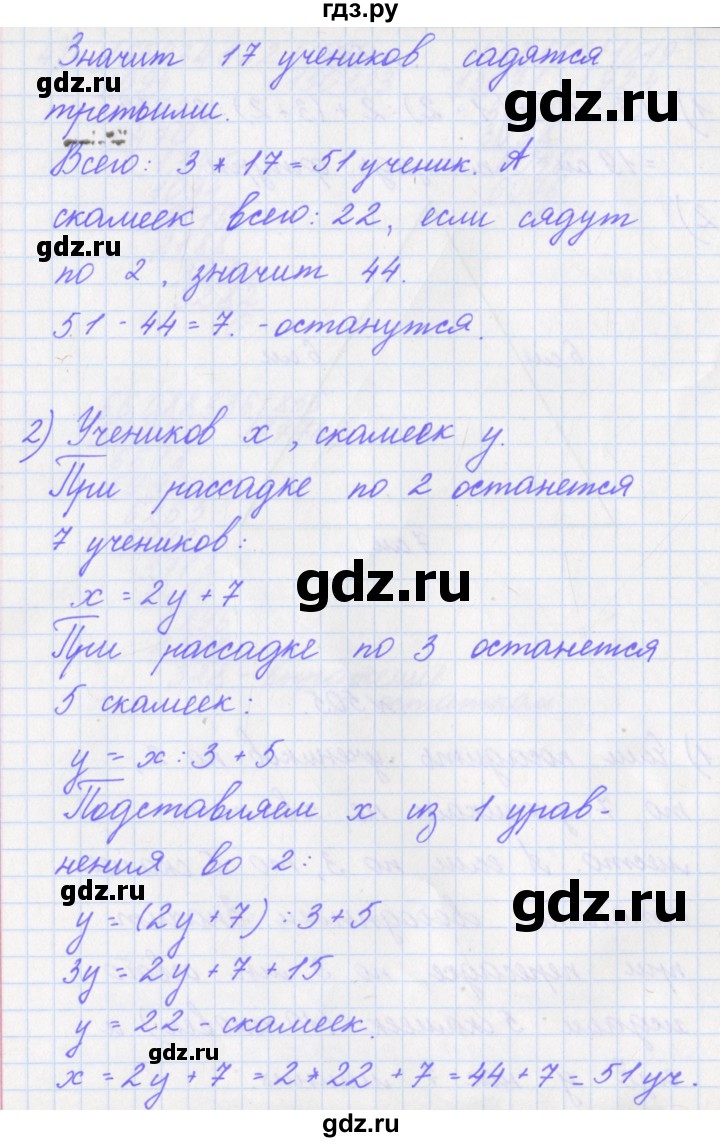 гдз.ру
Значит 17 учеников садятся
gdz.ru
третьими.
gdz.ru
Всего: 3 * 17 = 51 ученик. А
скамеек всего: 22, если сядут
gdz.ru
по 2, значит 44.
51 - 44 = 7. - останутся.
2) Учеников x, скамеек y.
При рассадке по 2 останется
7 учеников:
gdz.ru
x = 2y + 7
При рассадке по 3 останется
5 скамеек:
y = x : 3 + 5
Подставляем x из 1 урав-
нения во 2:
gdz.ru
gdz.ru
y = (2y + 7) : 3 + 5
3y = 2y + 7 + 15
y = 22 - скамеек.
gdz.ru
x = 2y + 7 = 2 * 22 + 7 = 44 + 7 = 51 уч.
gdz.ru